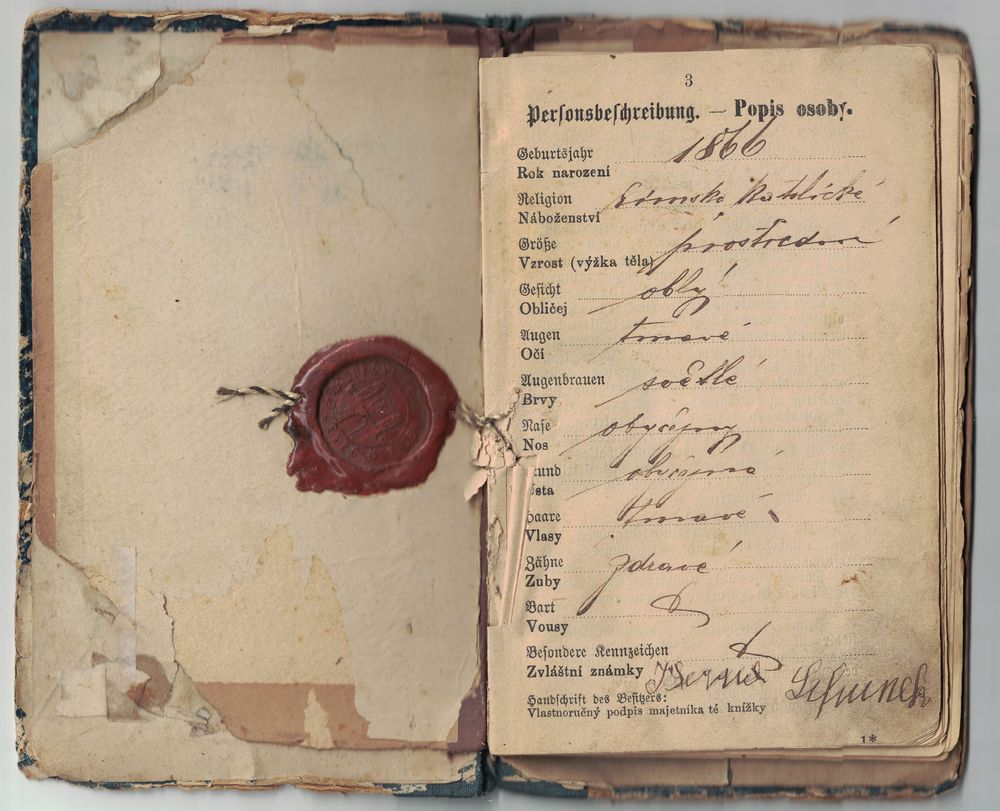 3
Personsbeschreibung. — Popis osoby.
Geburtsjahr 1866
Rok narození
Religion římsko katolické
Náboženství
Größe prostřední
Vzrost (výžka těla)
Gesicht oblý
Obličej
Augen tmavé
Oči
Augenbrauen světlé
Brvy
Nase obyčejný
Nos
und obyčejná
sta
aare tmavé
Vlasy
Zähne Zdravé
Zuby
Bart
Vousy
Besondere Kennzeichen
Zvláštní známky
Handschrift des Besitzers:
Vlastnoručný podpis majetníka té knížky
1*